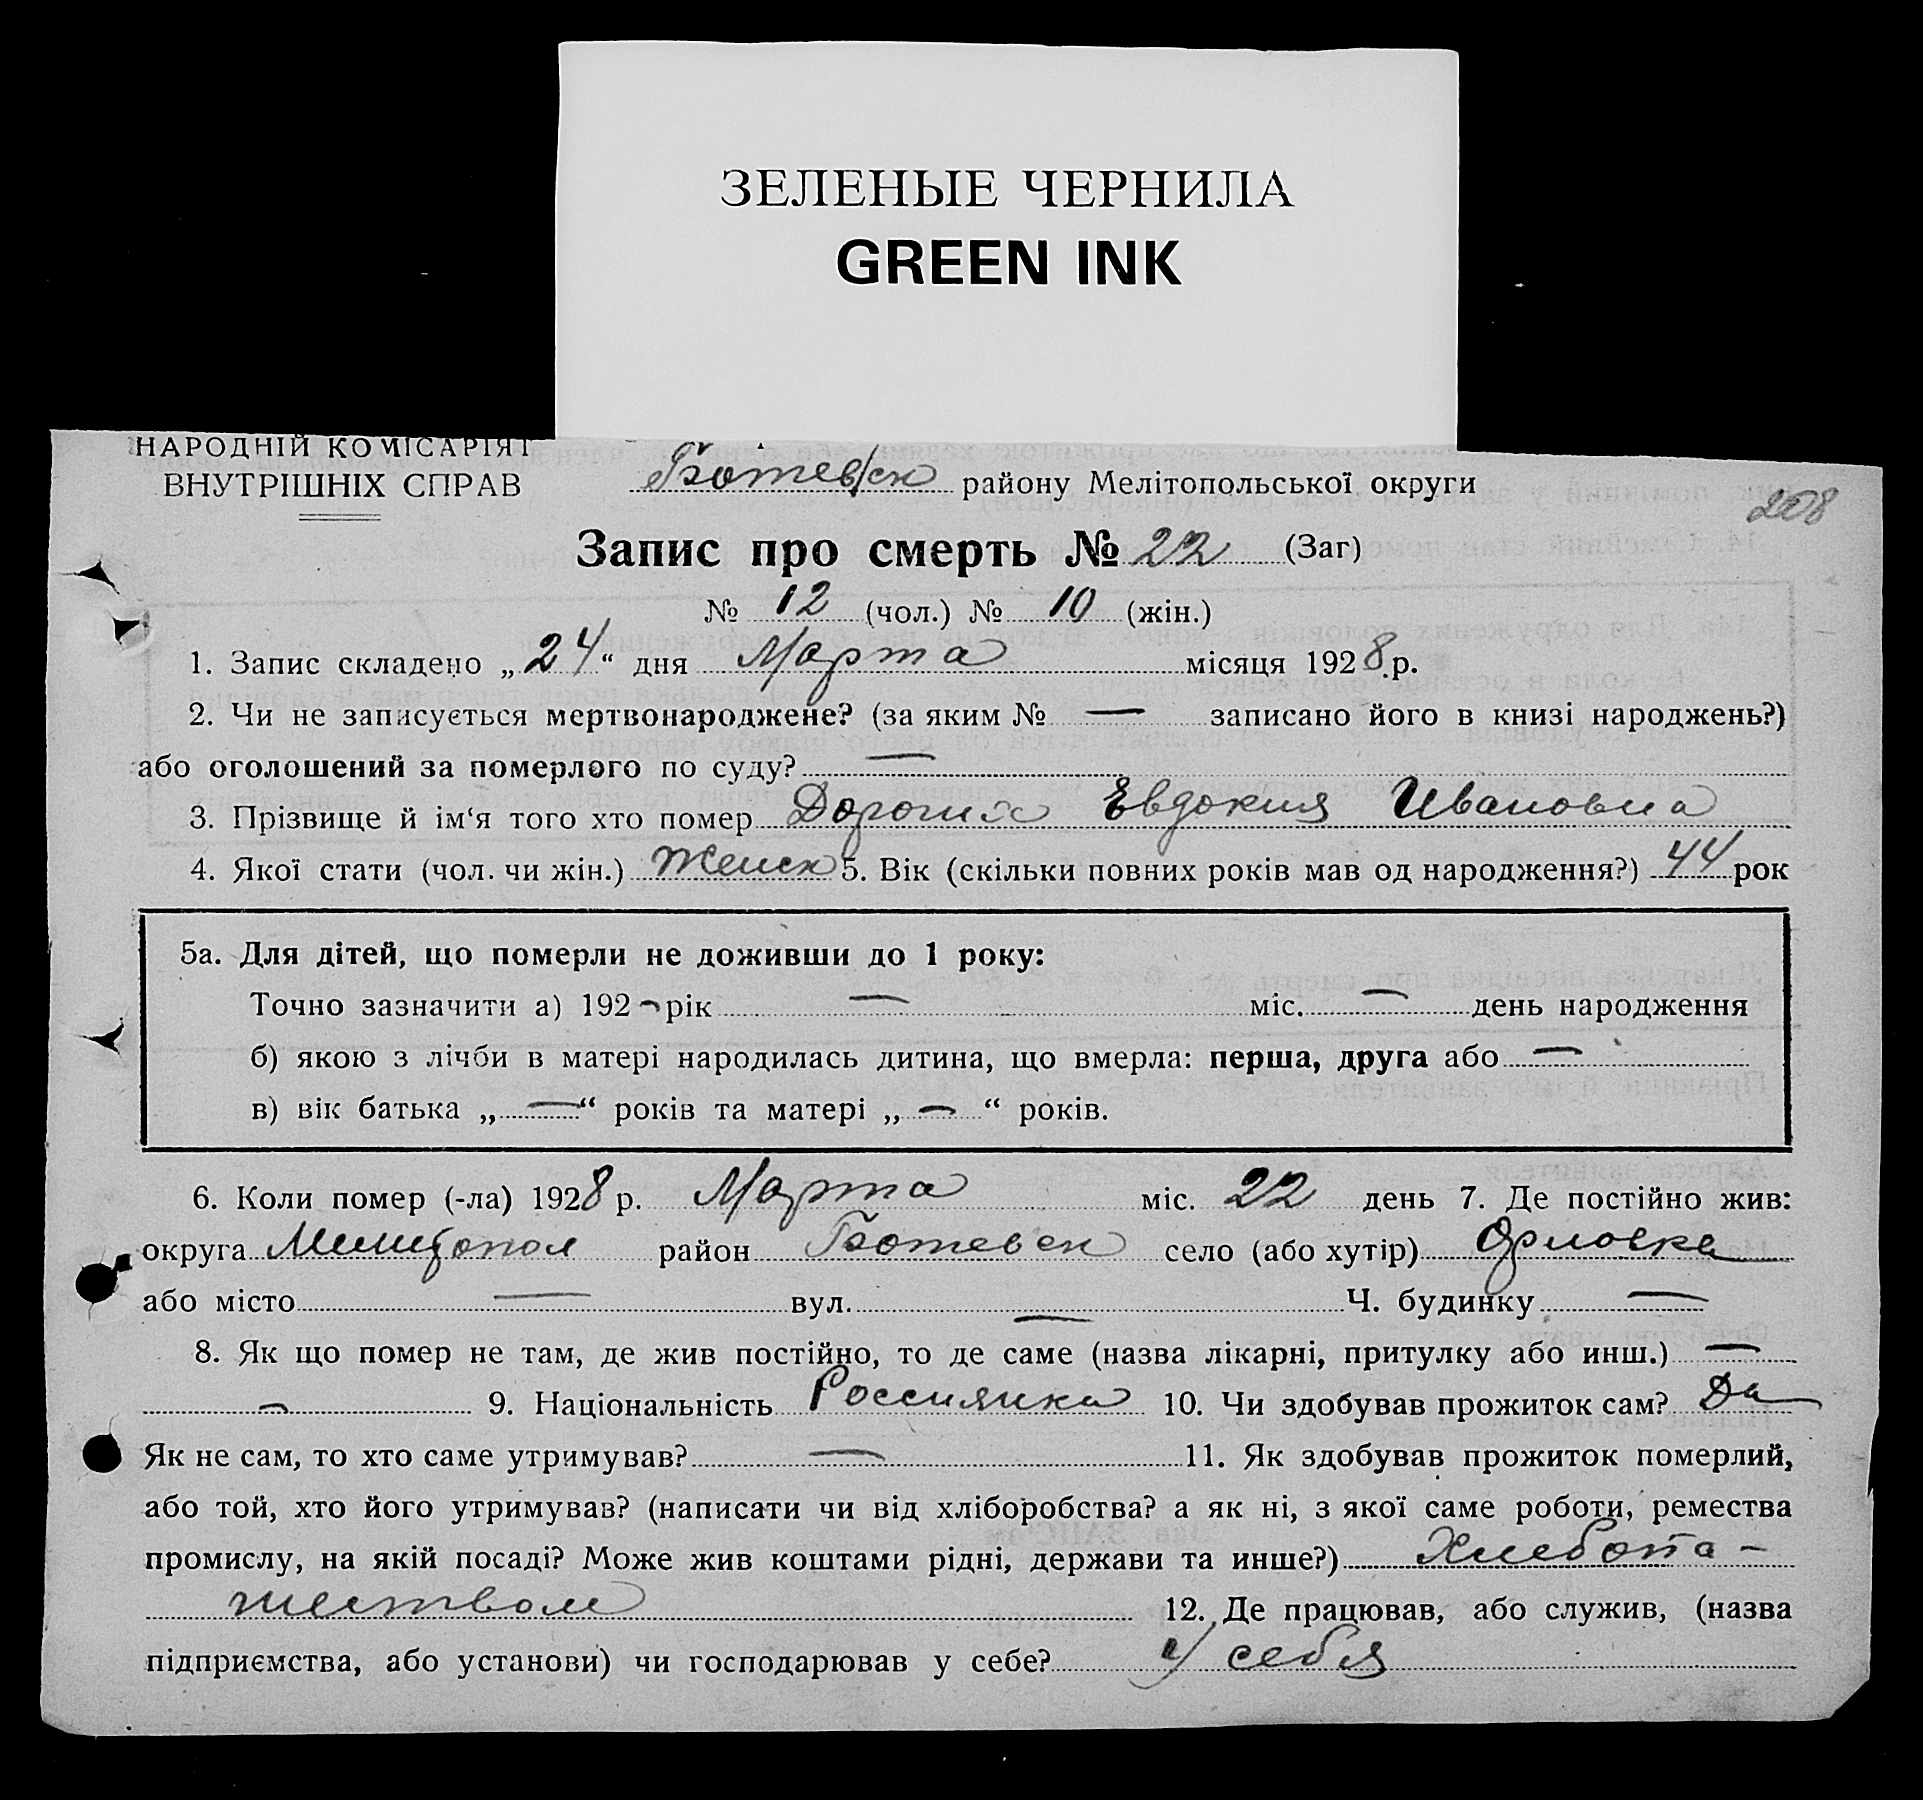 ЗЕЛЕНЫЕ ЧЕРНИЛА
GREEN INK
НАРОДНІЙ КОМІСАРІЯТ
ВНУТРІШНІХ СПРАВ
Ботевск району Мелітопольської округи
208
Запис про смерть № 22 (Заг)
№ 12 (чол.) № 10 (жін.)
1. Запис складено „24“ дня Марта місяця 1928 р.
2. Чи не записується мертвонароджене? (за яким № — записано його в книзі народжень?)
або оголошений за померлого по суду? —
3. Прізвище й ім‘я того хто помер Дорогих Евдокия Ивановна
4. Якої стати (чол. чи жін.) Женск 5. Вік (скільки повних років мав од народження?) 44 рок
5а. Для дітей, що померли не доживши до 1 року:
Точно зазначити а) 192 — рік — міс. — день народження
б) якою з лічби в матері народилась дитина, що вмерла: перша, друга або —
в) вік батька „—“ років та матері „—“ років.
6. Коли помер (-ла) 1928 р. Марта міс. 22 день 7. Де постійно жив:
округа Мелитопол район Ботевск село (або хутір) Орловка
або місто — вул. — Ч. будинку —
8. Як що помер не там, де жив постійно, то де саме (назва лікарні, притулку або инш.) —
— 9. Національність Россиянка 10. Чи здобував прожиток сам? Да
Як не сам, то хто саме утримував? — 11. Як здобував прожиток померлий,
або той, хто його утримував? (написати чи від хліборобства? а як ні, з якої саме роботи, ремества
промислу, на якій посаді? Може жив коштами рідні, держави та инше?) Хлебопа-
шеством 12. Де працював, або служив, (назва
підприємства, або установи) чи господарював у себе? у себя